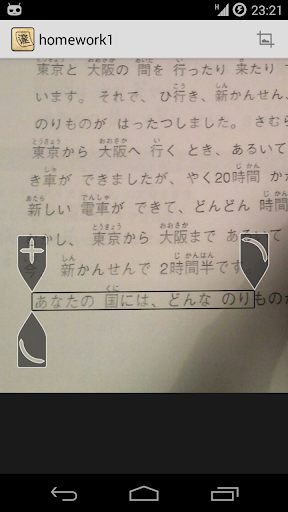 23:21
homework1
東京と 大阪の 間を 行ったり 来たり
います。 それで、 ひ行き、新かんせん、
のりものが はったつしました。 さむら
東京から 大阪へ 行く とき、あるいて
き車が できましたが、やく20時間 か
新しい 電車が できて、どんどん 時間
かし、 東京から 大阪まで あるいて
新かんせんで 2時間半です
あなたの 国には、どんな のりものか